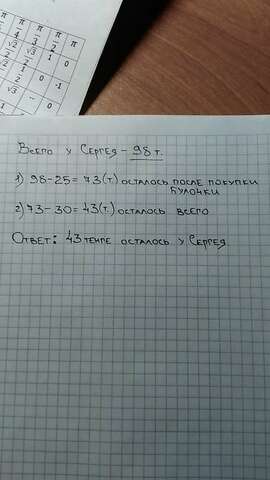 π π π π
4 3 2
√2 √3 1 0
2 2
0 -1
√3 - 0
Всего у Сергея - 98 т.
1) 98-25=73(т.) осталось после покупки
булочки
2) 73-30=43(т.) осталось всего
Ответ: 43 тенге осталось у Сергея